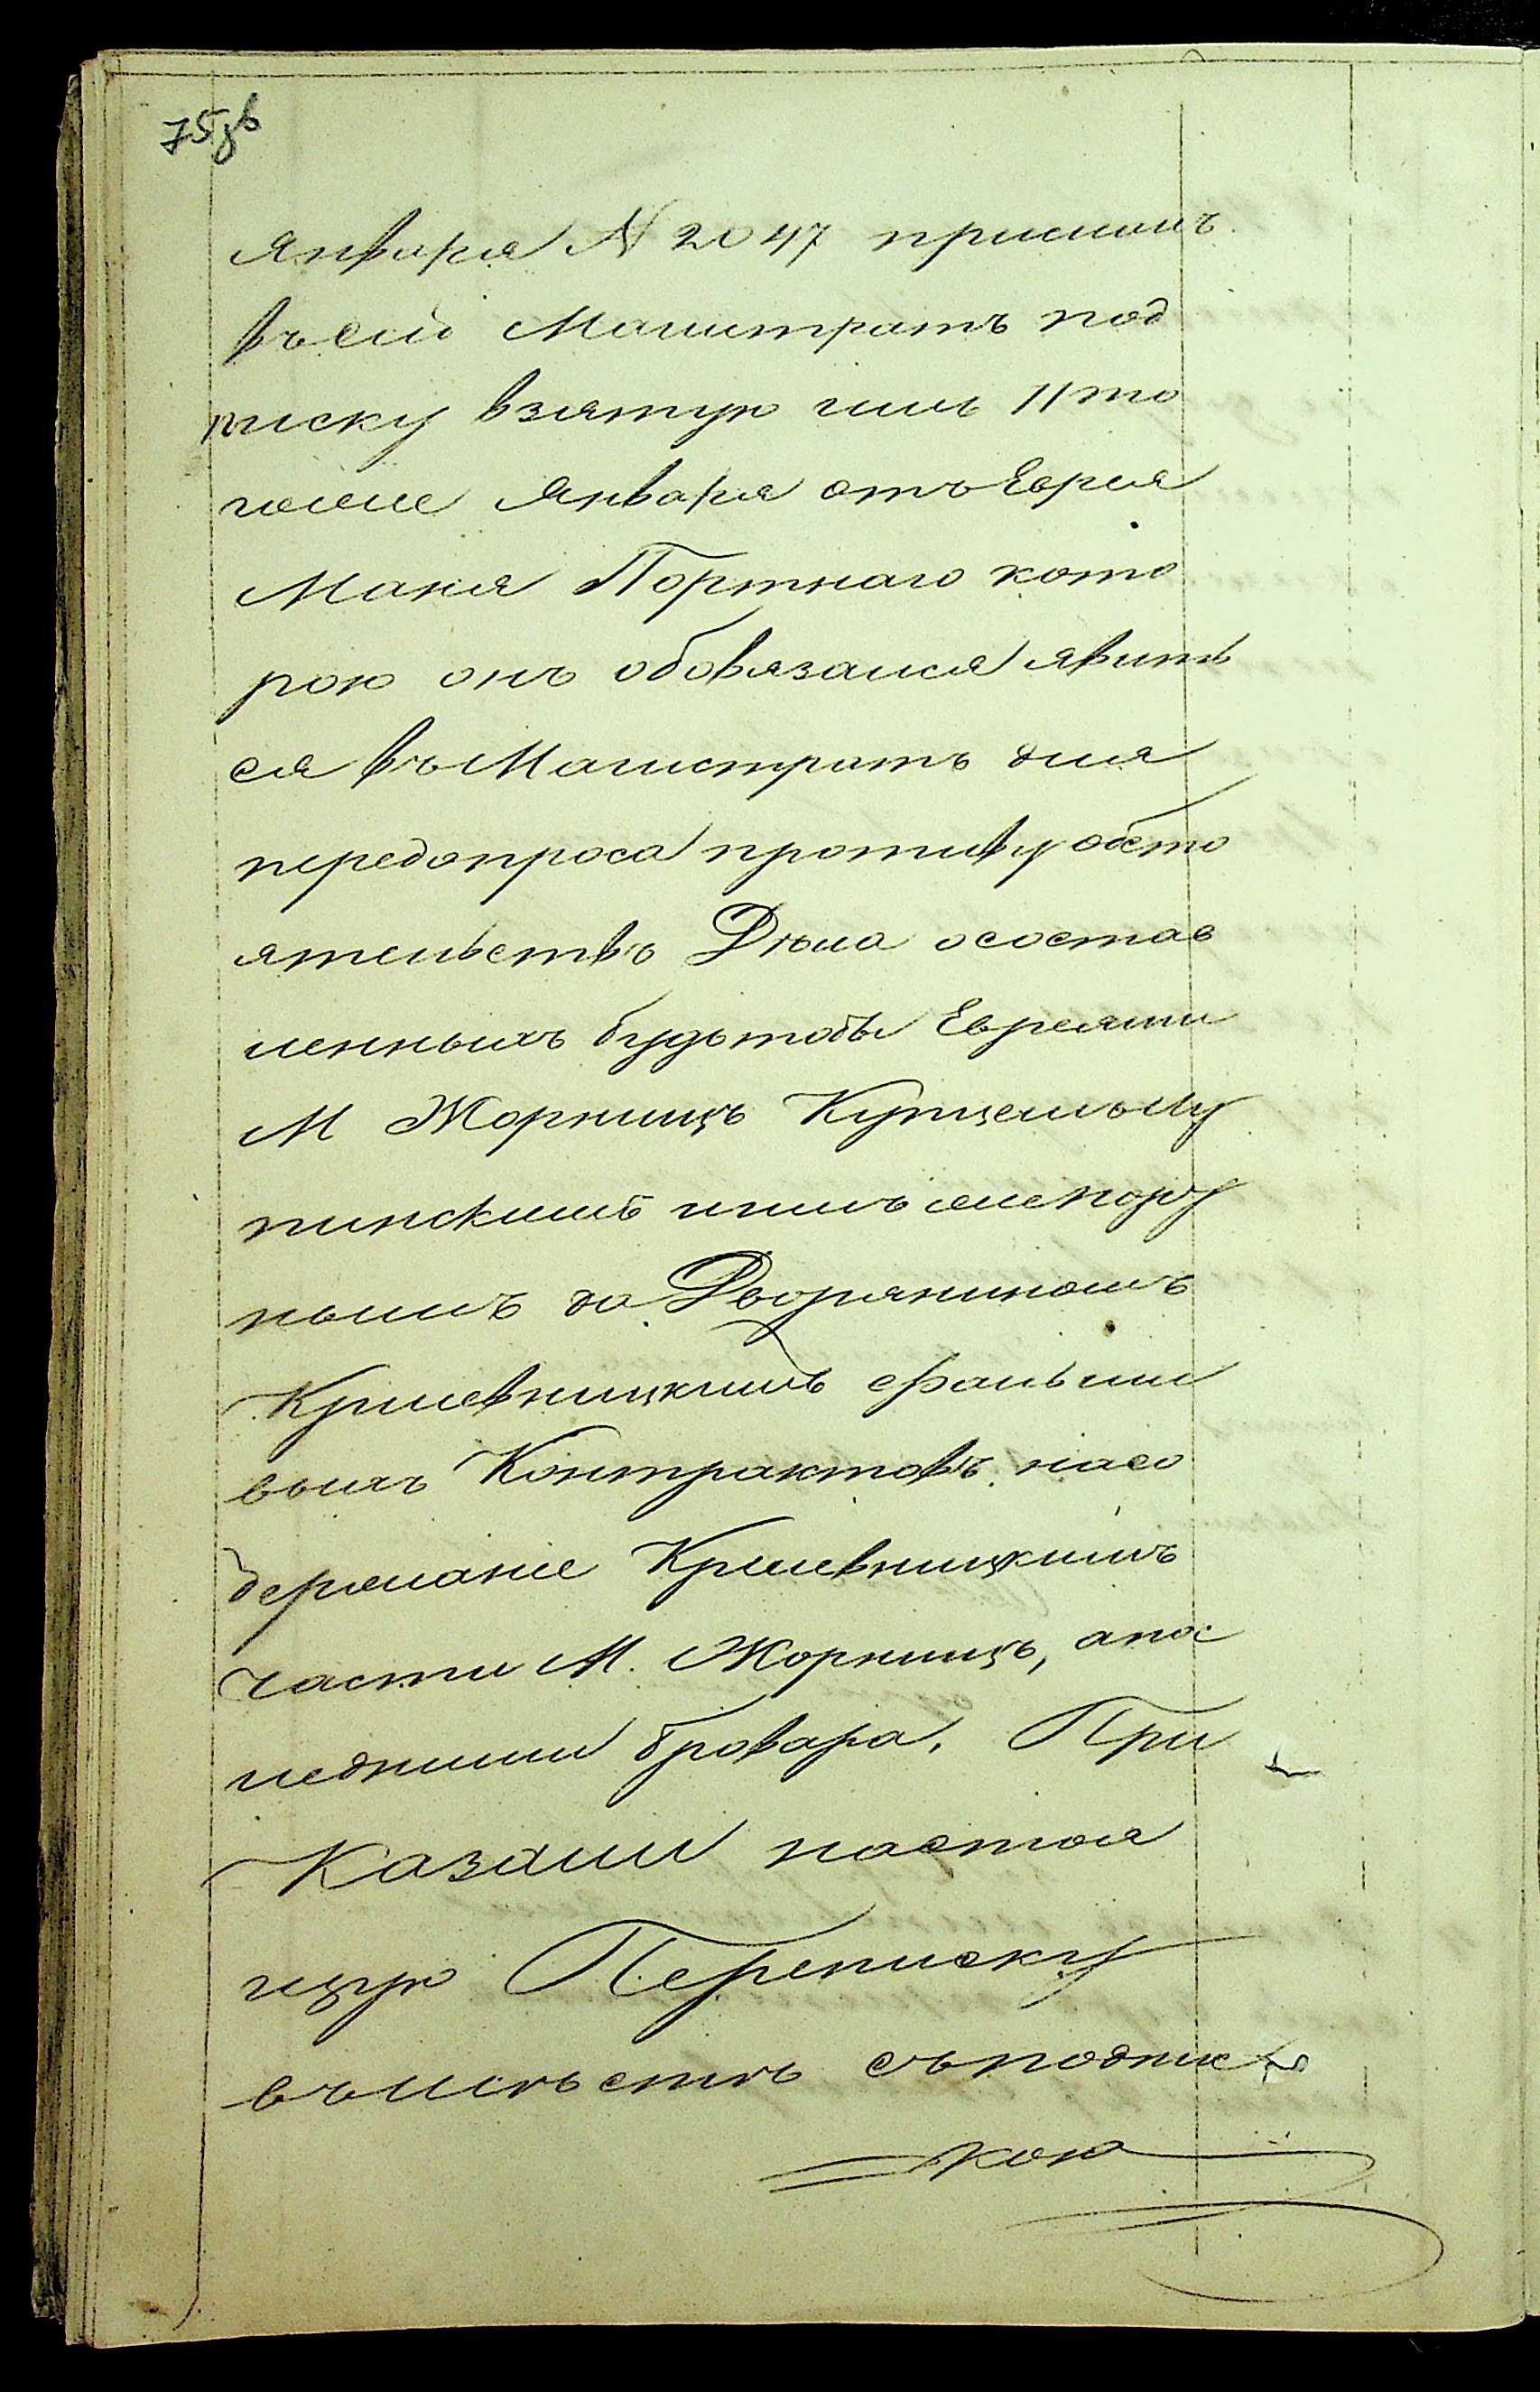 75зв
Января № 2047 прислалъ
въ сей Магистратъ под
писку взятую имъ 11го
числа Января отъ Еврея
Мания Портнаго кото
рою онъ обовязался явить
ся въ Магистратъ для
передопроса противу обсто
ятельствъ Дѣла о состав
ленныхъ будьтобы Евреями
М Жорнищъ
пинскимъ инымъ
нымъ до Дворяниномъ
Крилевницкимъ фальши
выхъ Контрактовъ насо
держание Крилевницкимъ
части М. Жорнищъ, апос
ледними бровара, При
казали настоя
щую Переписку
вмѣстѣ съ подпис
кою